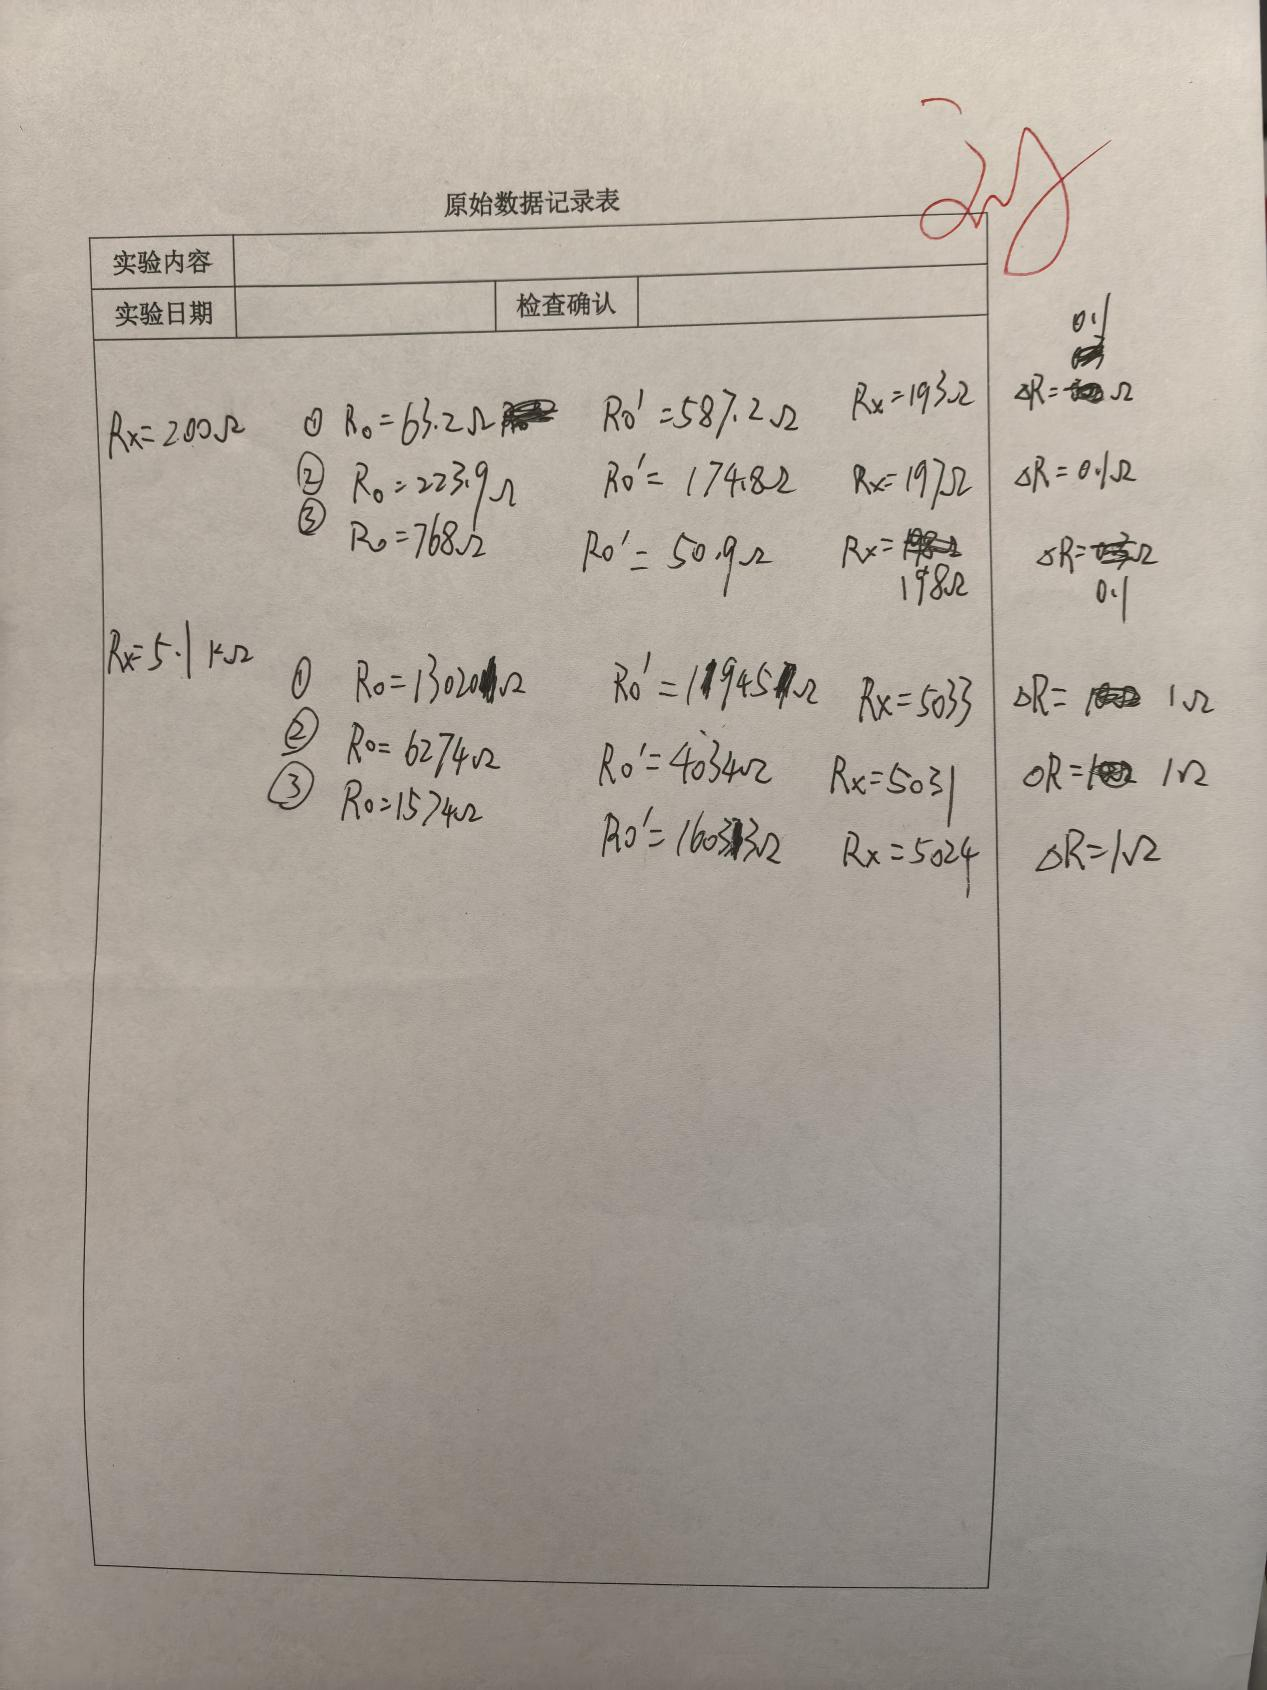 原始数据记录表
实验内容
实验日期 检查确认
Rx=200Ω ① R₀=63.2Ω R₀'=587.2Ω Rx=193Ω ΔR=0.1Ω
② R₀=223.9Ω R₀'=174.8Ω Rx=197Ω ΔR=0.1Ω
③ R₀=768Ω R₀'=50.9Ω Rx=198Ω ΔR=0.1Ω
Rx=5.1kΩ ① R₀=13020Ω R₀'=1945Ω Rx=5033 ΔR=1Ω
② R₀=6274Ω R₀'=4034Ω Rx=5031 ΔR=1Ω
③ R₀=1574Ω R₀'=16033Ω Rx=5024 ΔR=1Ω